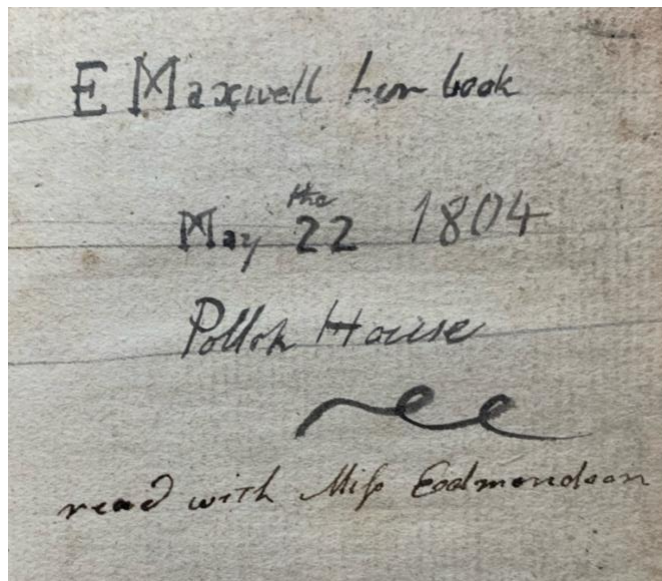 E Maxwell her book
May the 22 1804
Pollok House
read with Miſs Eadmondson